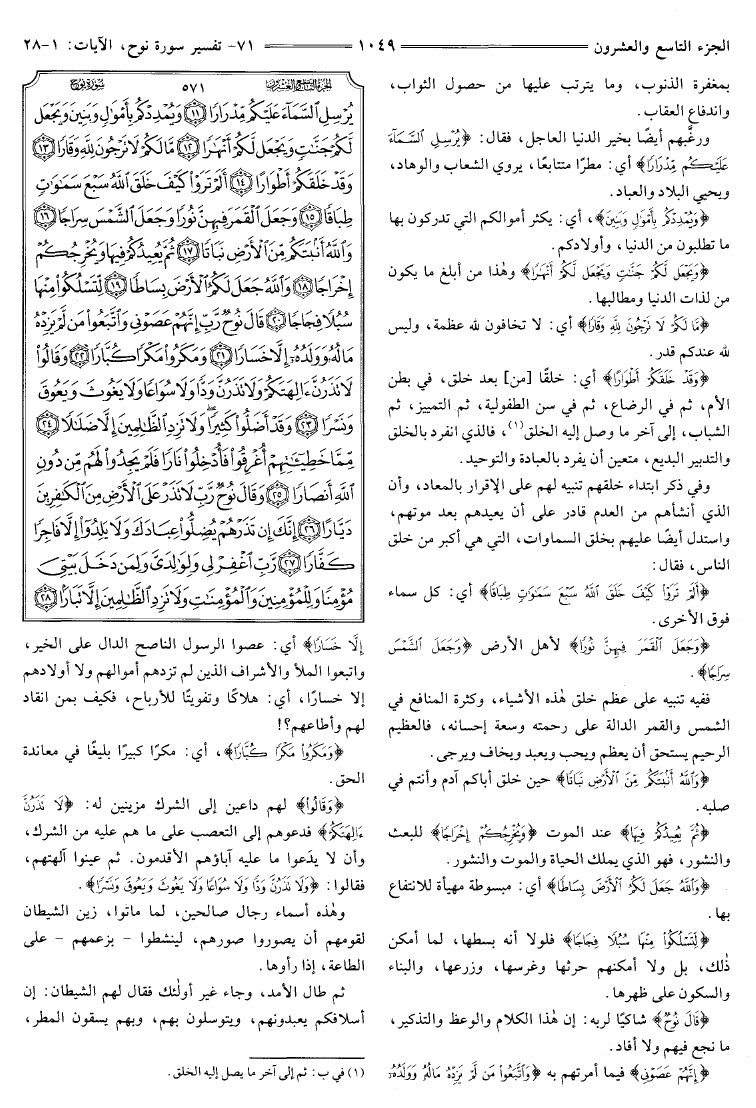 الجزء التاسع والعشرون
١٠٤٩
٧١- تفسير سورة نوح، الآيات: ١-٢٨
بمغفرة الذنوب، وما يترتب عليها من حصول الثواب،
واندفاع العقاب.
ورغَّبهم أيضًا بخير الدنيا العاجل، فقال: ﴿يُرْسِلِ السَّمَآءَ
عَلَيْكُم مِّدْرَارًا﴾ أي: مطرًا متتابعًا، يروي الشعاب والوهاد،
ويحيي البلاد والعباد.
﴿وَيُمْدِدْكُم بِأَمْوَٰلٍ وَبَنِينَ﴾، أي: يكثر أموالكم التي تدركون بها
ما تطلبون من الدنيا، وأولادكم.
﴿وَيَجْعَل لَّكُمْ جَنَّٰتٍ وَيَجْعَل لَّكُمْ أَنْهَٰرًا﴾ وهٰذا من أبلغ ما يكون
من لذات الدنيا ومطالبها.
﴿مَّا لَكُمْ لَا تَرْجُونَ لِلَّهِ وَقَارًا﴾ أي: لا تخافون لله عظمة، وليس
لله عندكم قدر.
﴿وَقَدْ خَلَقَكُمْ أَطْوَارًا﴾ أي: خلقًا [من] بعد خلق، في بطن
الأم، ثم في الرضاع، ثم في سن الطفولية، ثم التمييز، ثم
الشباب، إلى آخر ما وصل إليه الخلق(١)، فالذي انفرد بالخلق
والتدبير البديع، متعين أن يفرد بالعبادة والتوحيد.
وفي ذكر ابتداء خلقهم تنبيه لهم على الإقرار بالمعاد، وأن
الذي أنشأهم من العدم قادر على أن يعيدهم بعد موتهم،
واستدل أيضًا عليهم بخلق السماوات، التي هي أكبر من خلق
الناس، فقال:
﴿أَلَمْ تَرَوْا كَيْفَ خَلَقَ اللَّهُ سَبْعَ سَمَٰوَٰتٍ طِبَاقًا﴾ أي: كل سماء
فوق الأخرى.
﴿وَجَعَلَ الْقَمَرَ فِيهِنَّ نُورًا﴾ لأهل الأرض ﴿وَجَعَلَ الشَّمْسَ
سِرَاجًا﴾.
ففيه تنبيه على عظم خلق هٰذه الأشياء، وكثرة المنافع في
الشمس والقمر الدالة على رحمته وسعة إحسانه، فالعظيم
الرحيم يستحق أن يعظم ويحب ويعبد ويخاف ويرجى.
﴿وَاللَّهُ أَنبَتَكُم مِّنَ الْأَرْضِ نَبَاتًا﴾ حين خلق أباكم آدم وأنتم في
صلبه.
﴿ثُمَّ يُعِيدُكُمْ فِيهَا﴾ عند الموت ﴿وَيُخْرِجُكُمْ إِخْرَاجًا﴾ للبعث
والنشور، فهو الذي يملك الحياة والموت والنشور.
﴿وَاللَّهُ جَعَلَ لَكُمُ الْأَرْضَ بِسَاطًا﴾ أي: مبسوطة مهيأة للانتفاع
بها.
﴿لِّتَسْلُكُوا مِنْهَا سُبُلًا فِجَاجًا﴾ فلولا أنه بسطها، لما أمكن
ذٰلك، بل ولا أمكنهم حرثها وغرسها، وزرعها، والبناء
والسكون على ظهرها.
﴿قَالَ نُوحٌ﴾ شاكيًا لربه: إن هٰذا الكلام والوعظ والتذكير،
ما نجع فيهم ولا أفاد.
﴿إِنَّهُمْ عَصَوْنِي﴾ فيما أمرتهم به ﴿وَاتَّبَعُوا مَن لَّمْ يَزِدْهُ مَالُهُ وَوَلَدُهُ
الجزء التاسع والعشرون
٥٧١
سورة نوح
يُرْسِلِ السَّمَآءَ عَلَيْكُم مِّدْرَارًا ١١ وَيُمْدِدْكُم بِأَمْوَٰلٍ وَبَنِينَ وَيَجْعَل
لَّكُمْ جَنَّٰتٍ وَيَجْعَل لَّكُمْ أَنْهَٰرًا ١٢ مَّا لَكُمْ لَا تَرْجُونَ لِلَّهِ وَقَارًا ١٣
وَقَدْ خَلَقَكُمْ أَطْوَارًا ١٤ أَلَمْ تَرَوْا كَيْفَ خَلَقَ اللَّهُ سَبْعَ سَمَٰوَٰتٍ
طِبَاقًا ١٥ وَجَعَلَ الْقَمَرَ فِيهِنَّ نُورًا وَجَعَلَ الشَّمْسَ سِرَاجًا ١٦
وَاللَّهُ أَنۢبَتَكُم مِّنَ الْأَرْضِ نَبَاتًا ١٧ ثُمَّ يُعِيدُكُمْ فِيهَا وَيُخْرِجُكُمْ
إِخْرَاجًا ١٨ وَاللَّهُ جَعَلَ لَكُمُ الْأَرْضَ بِسَاطًا ١٩ لِّتَسْلُكُوا مِنْهَا
سُبُلًا فِجَاجًا ٢٠ قَالَ نُوحٌ رَّبِّ إِنَّهُمْ عَصَوْنِي وَاتَّبَعُوا مَن لَّمْ يَزِدْهُ
مَالُهُ وَوَلَدُهُ إِلَّا خَسَارًا ٢١ وَمَكَرُوا مَكْرًا كُبَّارًا ٢٢ وَقَالُوا
لَا تَذَرُنَّ ءَالِهَتَكُمْ وَلَا تَذَرُنَّ وَدًّا وَلَا سُوَاعًا وَلَا يَغُوثَ وَيَعُوقَ
وَنَسْرًا ٢٣ وَقَدْ أَضَلُّوا كَثِيرًا وَلَا تَزِدِ الظَّٰلِمِينَ إِلَّا ضَلَٰلًا ٢٤
مِّمَّا خَطِيٓـَٰٔتِهِمْ أُغْرِقُوا فَأُدْخِلُوا نَارًا فَلَمْ يَجِدُوا لَهُم مِّن دُونِ
اللَّهِ أَنصَارًا ٢٥ وَقَالَ نُوحٌ رَّبِّ لَا تَذَرْ عَلَى الْأَرْضِ مِنَ الْكَٰفِرِينَ
دَيَّارًا ٢٦ إِنَّكَ إِن تَذَرْهُمْ يُضِلُّوا عِبَادَكَ وَلَا يَلِدُوا إِلَّا فَاجِرًا
كَفَّارًا ٢٧ رَّبِّ اغْفِرْ لِي وَلِوَٰلِدَيَّ وَلِمَن دَخَلَ بَيْتِيَ
مُؤْمِنًا وَلِلْمُؤْمِنِينَ وَالْمُؤْمِنَٰتِ وَلَا تَزِدِ الظَّٰلِمِينَ إِلَّا تَبَارًا ٢٨
إِلَّا خَسَارًا﴾ أي: عصوا الرسول الناصح الدال على الخير،
واتبعوا الملأ والأشراف الذين لم تزدهم أموالهم ولا أولادهم
إلا خسارًا، أي: هلاكًا وتفويتًا للأرباح، فكيف بمن انقاد
لهم وأطاعهم؟!
﴿وَمَكَرُوا مَكْرًا كُبَّارًا﴾، أي: مكرًا كبيرًا بليغًا في معاندة
الحق.
﴿وَقَالُوا﴾ لهم داعين إلى الشرك مزينين له: ﴿لَا تَذَرُنَّ
ءَالِهَتَكُمْ﴾ فدعوهم إلى التعصب على ما هم عليه من الشرك،
وأن لا يدَعوا ما عليه آباؤهم الأقدمون. ثم عينوا آلهتهم،
فقالوا: ﴿وَلَا تَذَرُنَّ وَدًّا وَلَا سُوَاعًا وَلَا يَغُوثَ وَيَعُوقَ وَنَسْرًا﴾.
وهٰذه أسماء رجال صالحين، لما ماتوا، زين الشيطان
لقومهم أن يصوروا صورهم، لينشطوا - بزعمهم - على
الطاعة، إذا رأوها.
ثم طال الأمد، وجاء غير أولٰئك فقال لهم الشيطان: إن
أسلافكم يعبدونهم، ويتوسلون بهم، وبهم يسقون المطر،
(١) في ب: ثم إلى آخر ما يصل إليه الخلق.